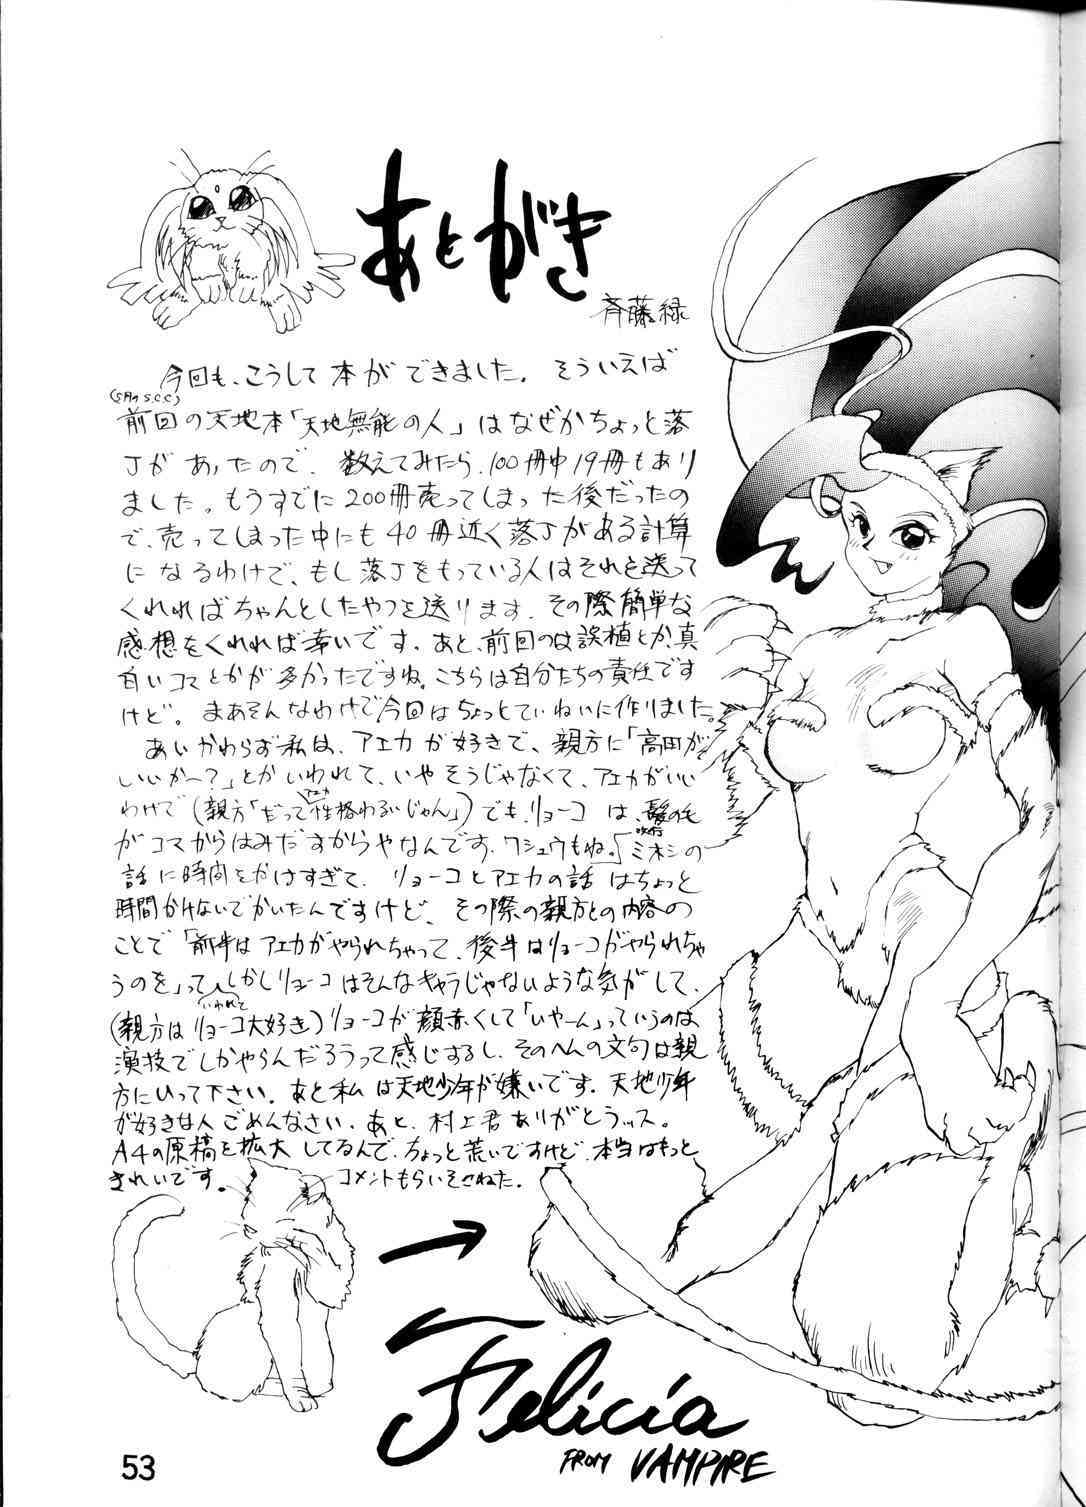 あとがき
斉藤緑
今回も、こうして本ができました。そういえば
(5月のS.C.C)
前回の天地本「天地無能の人」はなぜかちょっと落
丁があったので、数えてみたら、100冊中19冊もあり
ました。もうすでに200冊売ってしまった後だったの
で、売ってしまった中にも40冊近く落丁がある計算
になるわけで、もし落丁をもっている人はそれを送って
くれればちゃんとしたやつを送ります。その際簡単な
感想をくれれば幸いです。あと、前回のは誤植とか、真
白いコマとかが多かったですね。こちらは自分たちの責任です
けど。まあそんなわけで今回はちょっとていねいに作りました。
あいかわらず私は、アエカが好きで、親方に「高田が
いいかー?」とかいわれて、いやそうじゃなくて、アエカがいい
わけで(親方「だってアエカ性格わるいじゃん」)でも、リョーコは、髪の毛
がコマからはみだすからやなんです。ワシュウもね。「ミホシの
話に時間をかけすぎて、リョーコとアエカの話はちょっと
時間かけないでかいたんですけど、その際の親方との内容の
ことで「前半はアエカがやられちゃって、後半はリョーコがやられちゃ
うのを」っていわれて、しかしリョーコはそんなキャラじゃないような気がして、
(親方はリョーコ大好き)リョーコが顔赤くして「いやーん」っていうのは
演技でしかやらんだろうって感じするし、そのへんの文句は親
方にいって下さい。あと私は天地少年が嫌いです。天地少年
が好きな人ごめんなさい。あと、村上君ありがとうッス。
A4の原稿を拡大してるんで、ちょっと荒いですけど、本当はもっと
きれいです。
コメントもらいそこねた。
Felicia
FROM VAMPIRE
53